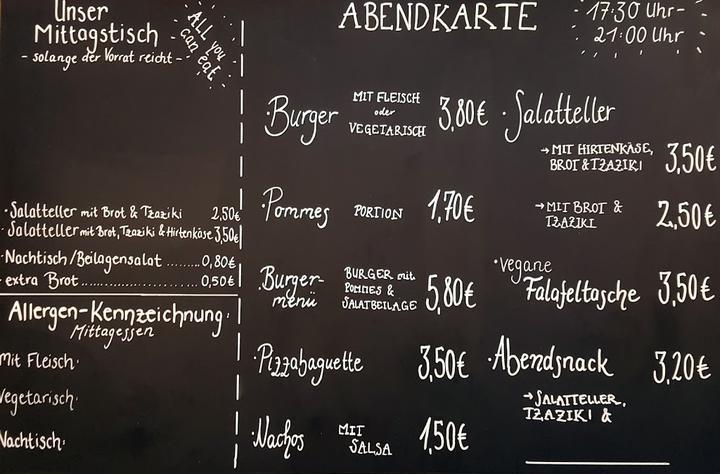 Unser
Mittagstisch
- solange der Vorrat reicht -
All you
can eat
·Salatteller mit Brot & Tzaziki 2,50€
·Salatteller mit Brot, Tzaziki & Hirtenkäse 3,50€
·Nachtisch/Beilagensalat ........ 0,80€
·extra Brot ........................ 0,50€
Allergen-Kennzeichnung
Mittagessen
Mit Fleisch:
Vegetarisch:
Nachtisch:
ABENDKARTE
17:30 Uhr-
21:00 Uhr
·Burger MIT FLEISCH oder VEGETARISCH 3,80€
·Pommes PORTION 1,70€
·Burger-
menü BURGER mit POMMES & SALATBEILAGE 5,80€
·Pizzabaguette 3,50€
·Nachos MIT SALSA 1,50€
·Salatteller
→ MIT HIRTENKÄSE,
BROT & TZAZIKI 3,50€
→ MIT BROT &
TZAZIKI 2,50€
·vegane
Falafeltasche 3,50€
·Abendsnack 3,20€
→ SALATTELLER,
TZAZIKI &